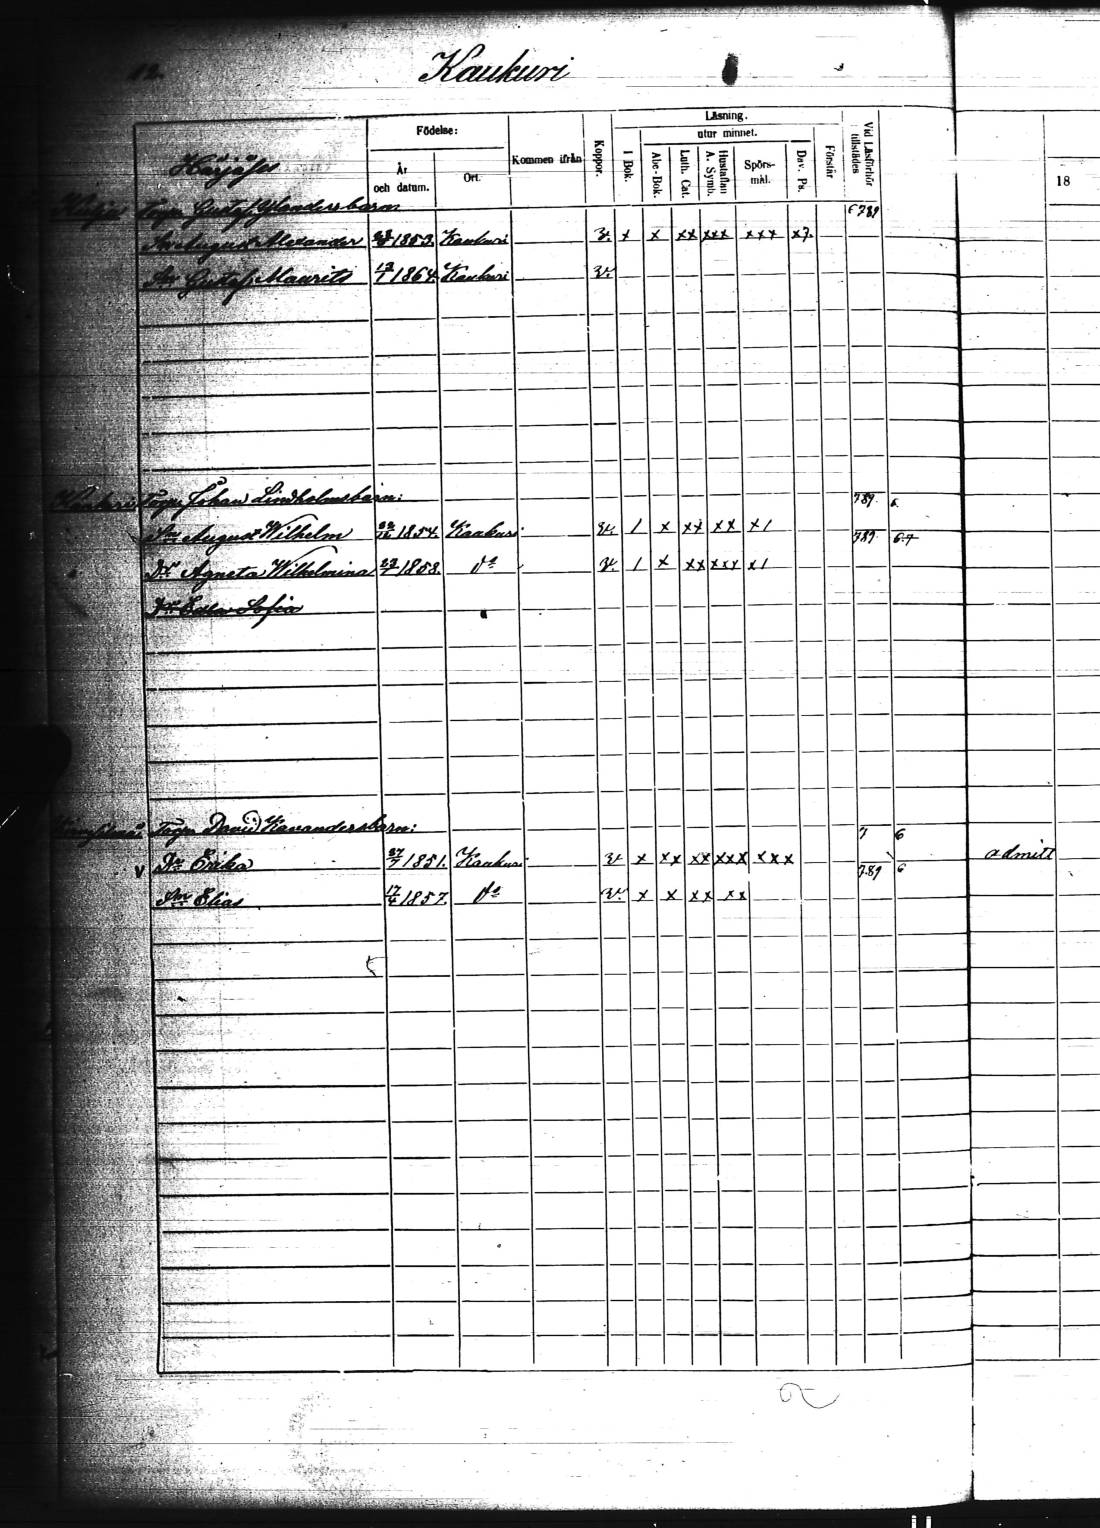 12.
Kaukuri
Födelse:
År och datum.
Ort.
Kommen ifrån
Koppor.
Läsning.
I Bok.
utur minnet.
Abc-Bok.
Luth. Cat.
Hustaflan A. Symb.
Spörs-mål.
Dav. Ps.
Förstår
Vid Läsförhör tillstädes
18
Gustaf barn 6789
Son August Alexander 1853. Kaukuri v. x x xx xxx xxx x7.
Sn Gustaf Maurits 13/1 1864. Kaukuri v.
Kaukuri Johan Lindholms barn: 789. 6
Sn August Wilhelm 1854. Kaukuri v. 1 x xx xx x1 789 6.7
Dr Agneta Wilhelmina 1858. do v. 1 x xx xxx x1
Dr Edla Sofia
David barn: 7 6
v Dr Erika 27/7 1851. Kaukuri v x xx xx xxx xxx 789 6 admitt
Sn Elias 17/4 1857. do v. x x xx xx